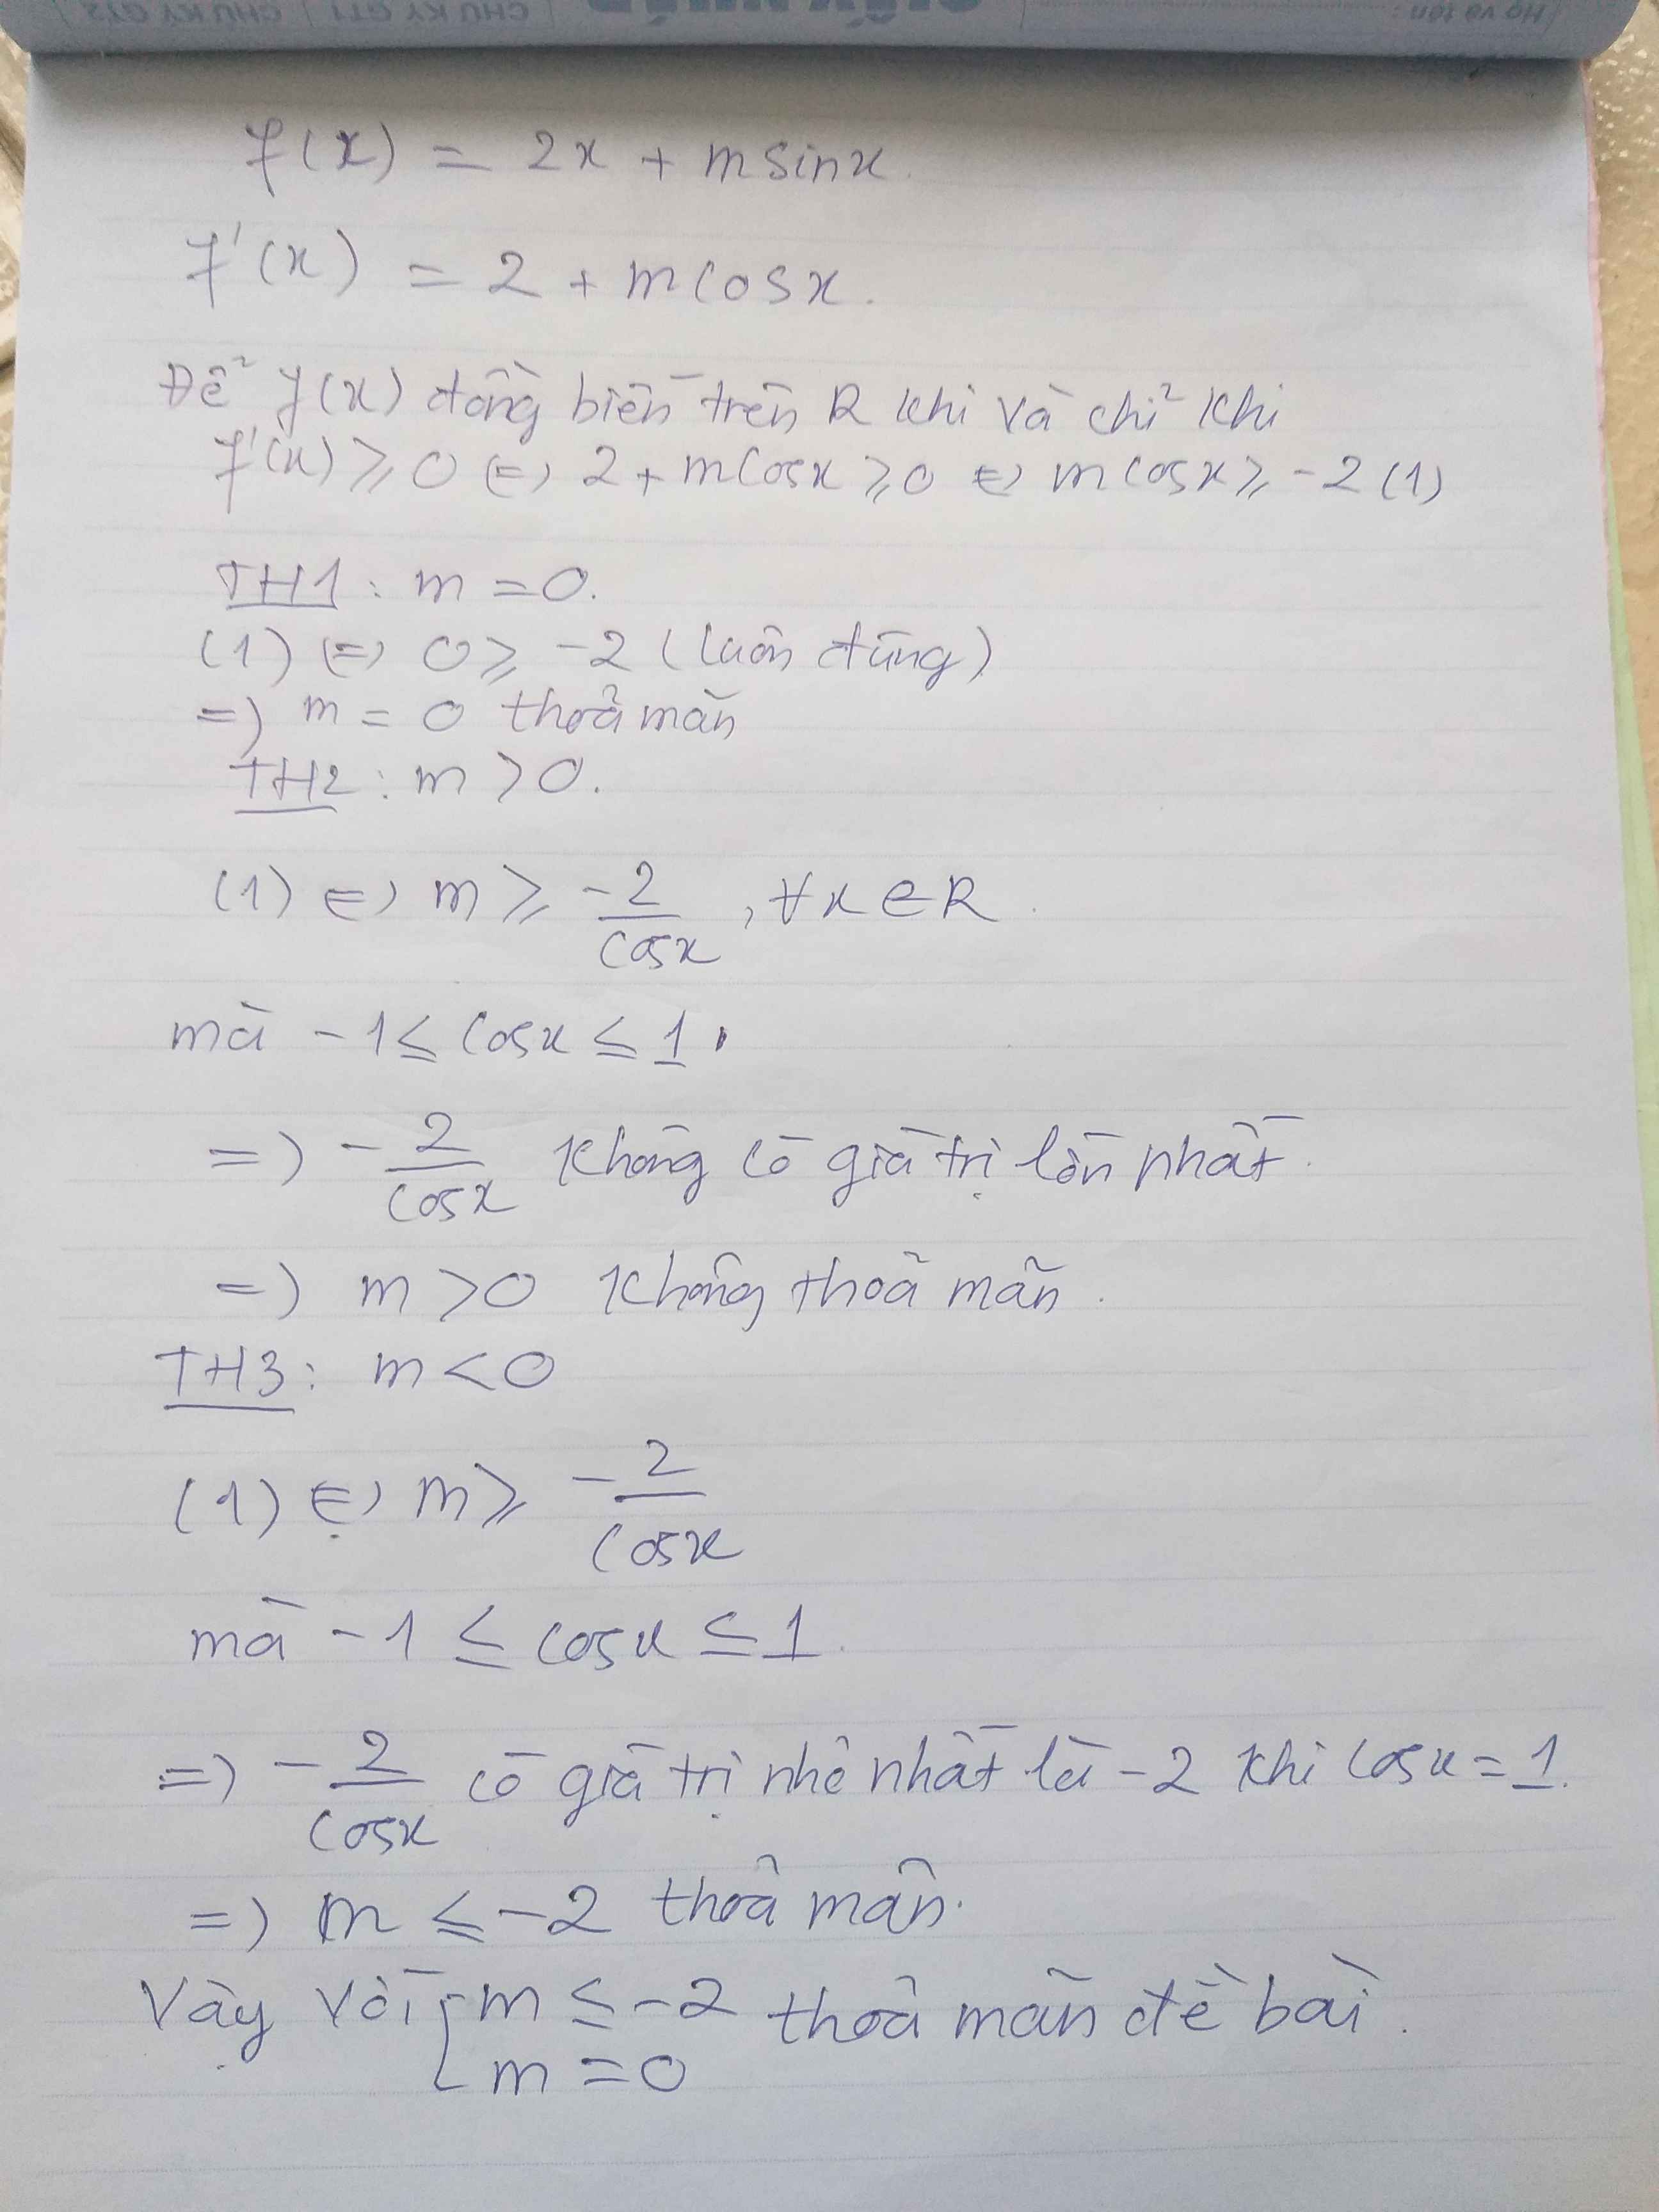 f(x) = 2x + m sinx.
f'(x) = 2 + m cosx.
Để f(x) đồng biến trên R khi và chỉ khi
f'(x) ≥ 0 ⇔ 2 + m cosx ≥ 0 ⇔ m cosx ≥ -2 (1)
TH1 : m = 0.
(1) ⇔ 0 ≥ -2 (luôn đúng)
=> m = 0 thoả mãn
TH2 : m > 0.
(1) ⇔ m ≥ -2/cosx , ∀x ∈ R.
mà -1 ≤ cosx ≤ 1.
=> -2/cosx không có giá trị lớn nhất.
=> m > 0 không thoả mãn.
TH3 : m < 0
(1) ⇔ m ≥ -2/cosx
mà -1 ≤ cosx ≤ 1.
=> -2/cosx có giá trị nhỏ nhất là -2 khi cosx = 1.
=> m ≤ -2 thoả mãn.
Vậy với [ m ≤ -2 thoả mãn đề bài.
m = 0